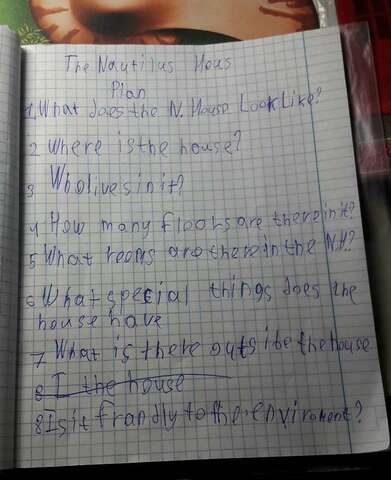 The Nautilus Hous
Plan
1. What does the N. House Look Like?
2 Where is the house?
3 Who lives in it?
4 How many floors are there in it?
5 What rooms are there in the N.H.?
6 What special things does the
house have
7 What is there outsibe the house
8 I the house
8 Is it frandly to the enviroment?